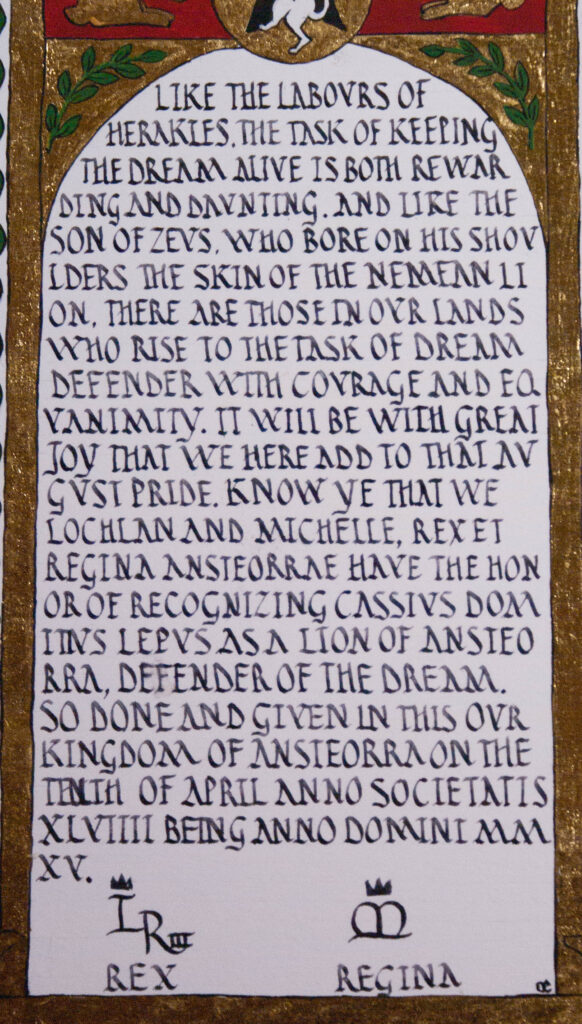 LIKE THE LABOVRS OF
HERAKLES, THE TASK OF KEEPING
THE DREAM ALIVE IS BOTH REWAR
DING AND DAVNTING. AND LIKE THE
SON OF ZEVS, WHO BORE ON HIS SHOV
LDERS THE SKIN OF THE NEMEAN LI
ON, THERE ARE THOSE IN OVR LANDS
WHO RISE TO THE TASK OF DREAM
DEFENDER WITH COVRAGE AND EQ
VANIMITY. IT WILL BE WITH GREAT
JOY THAT WE HERE ADD TO THAT AV
GVST PRIDE. KNOW YE THAT WE
LOCHLAN AND MICHELLE, REX ET
REGINA ANSTEORRAE HAVE THE HON
OR OF RECOGNIZING CASSIVS DOM
ITIVS LEPVS AS A LION OF ANSTEO
RRA, DEFENDER OF THE DREAM.
SO DONE AND GIVEN IN THIS OVR
KINGDOM OF ANSTEORRA ON THE
TENTH OF APRIL ANNO SOCIETATIS
XLVIIII BEING ANNO DOMINI MM
XV.
LR III
REX REGINA